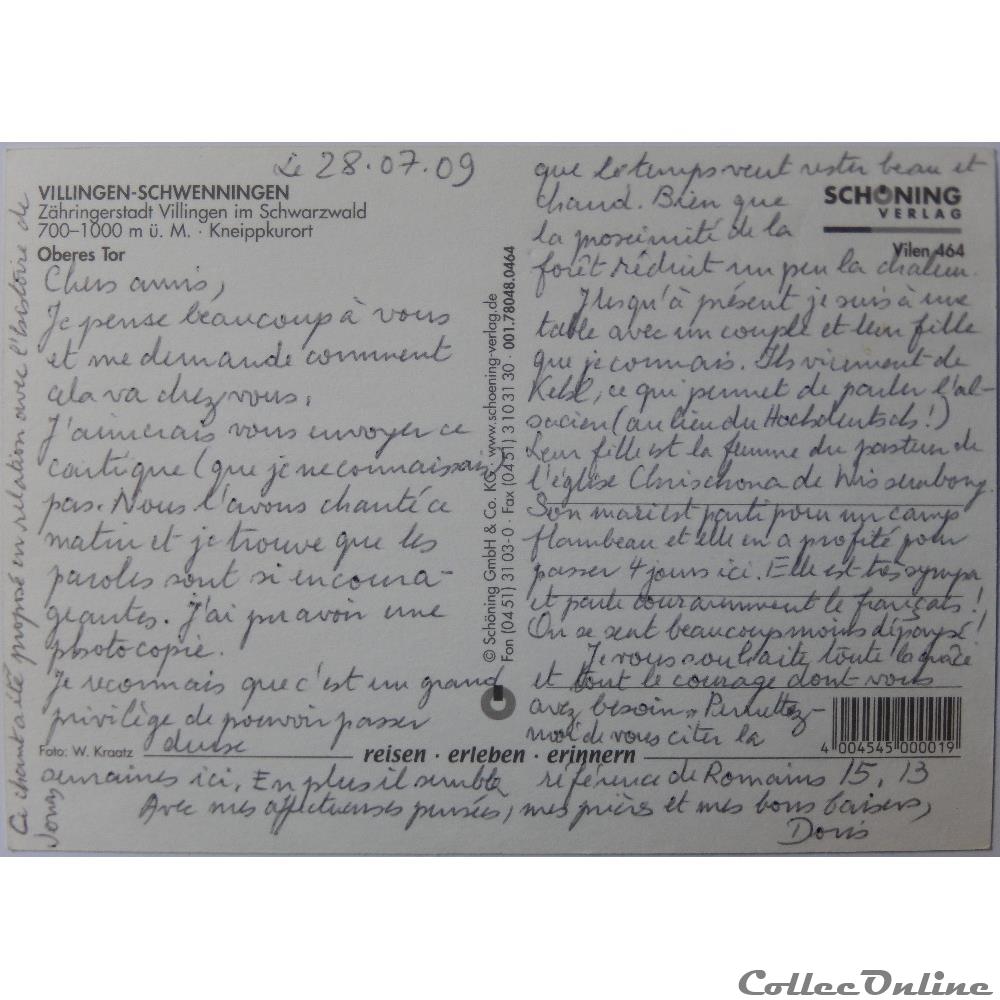 Le 28.07.09
VILLINGEN-SCHWENNINGEN
Zähringerstadt Villingen im Schwarzwald
700–1000 m ü. M. · Kneippkurort
Oberes Tor
Chers amis,
Je pense beaucoup à vous
et me demande comment
cela va chez vous.
J'aimerais vous envoyer ce
cantique (que je ne connaissais)
pas. Nous l'avons chanté ce
matin et je trouve que les
paroles sont si encoura-
geantes. J'ai pu avoir une
photocopie.
Je reconnais que c'est un grand
privilège de pouvoir passer
deux
Foto: W. Kraatz
semaines ici. En plus il semble
que le temps veut rester beau et
chaud. Bien que
la proximité de la
forêt réduit un peu la chaleur.
Jusqu'à présent je suis à une
table avec un couple et leur fille
que je connais. Ils viennent de
Kehl, ce qui permet de parler l'al-
sacien (au lieu du Hochdeutsch!)
Leur fille est la femme du pasteur de
l'église Chrischona de Wissembourg.
Son mari est parti pour un camp
flambeau et elle en a profité pour
passer 4 jours ici. Elle est très sympa
et parle couramment le français!
On se sent beaucoup moins dépaysé!
Je vous souhaite toute la grâce
et tout le courage dont vous
avez besoin. Permettez-
moi de vous citer la
référence de Romains 15, 13
Avec mes affectueuses pensées, mes prières et mes bons baisers,
Doris
Ce chant a été proposé en relation avec l'histoire de
Jonas
SCHÖNING
VERLAG
Vilen 464
© Schöning GmbH & Co. KG · www.schoening-verlag.de
Fon (04 51) 3 10 3-0 · Fax (04 51) 3 10 31 30 · 001.78048.0464
reisen · erleben · erinnern
4 004545 000019
CollecOnline